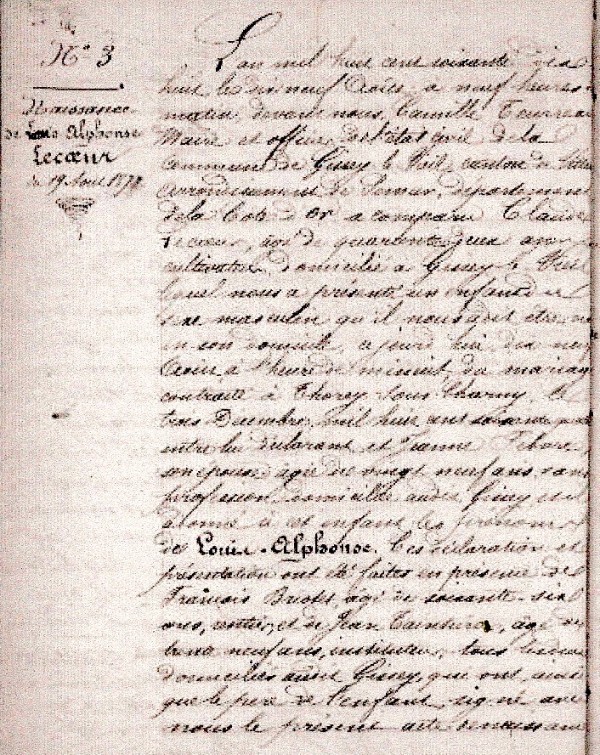 N° 3
Naissance
de Louis Alphonse
Lecœur
du 19 Août 1878
L'an mil huit cent soixante dix
huit le dix neuf Août, à neuf heures
matin, devant nous, Camille
Maire et officier de l'état civil de la
commune de Gissey le Vieil, canton de
arrondissement de Semur, département
de la Cote d'or a comparu Claude
Lecœur, âgé de quarante deux ans
cultivateur domicilié à Gissey le Vieil
lequel nous a présenté un enfant de
sexe masculin qu'il nous a dit être né
en son domicile, ce jourd'hui dix neuf
Août à l'heure de minuit, du mariage
contracté à Thorey Sous Charny, le
trois Décembre mil huit cent soixante
entre lui déclarant et Jeanne
son épouse âgée de vingt neuf ans, sans
profession domiciliée audit Gissey et il
a donné à cet enfant les prénoms
de Louis-Alphonse. Ces déclaration et
présentation ont été faites en présence de
François agé de soixante six
ans, rentier, et de Jean agé de
trente neuf ans, instituteur, tous deux
domiciliés audit Gissey, qui ont, ainsi
que le père de l'enfant, signé avec
nous le présent acte de naissance